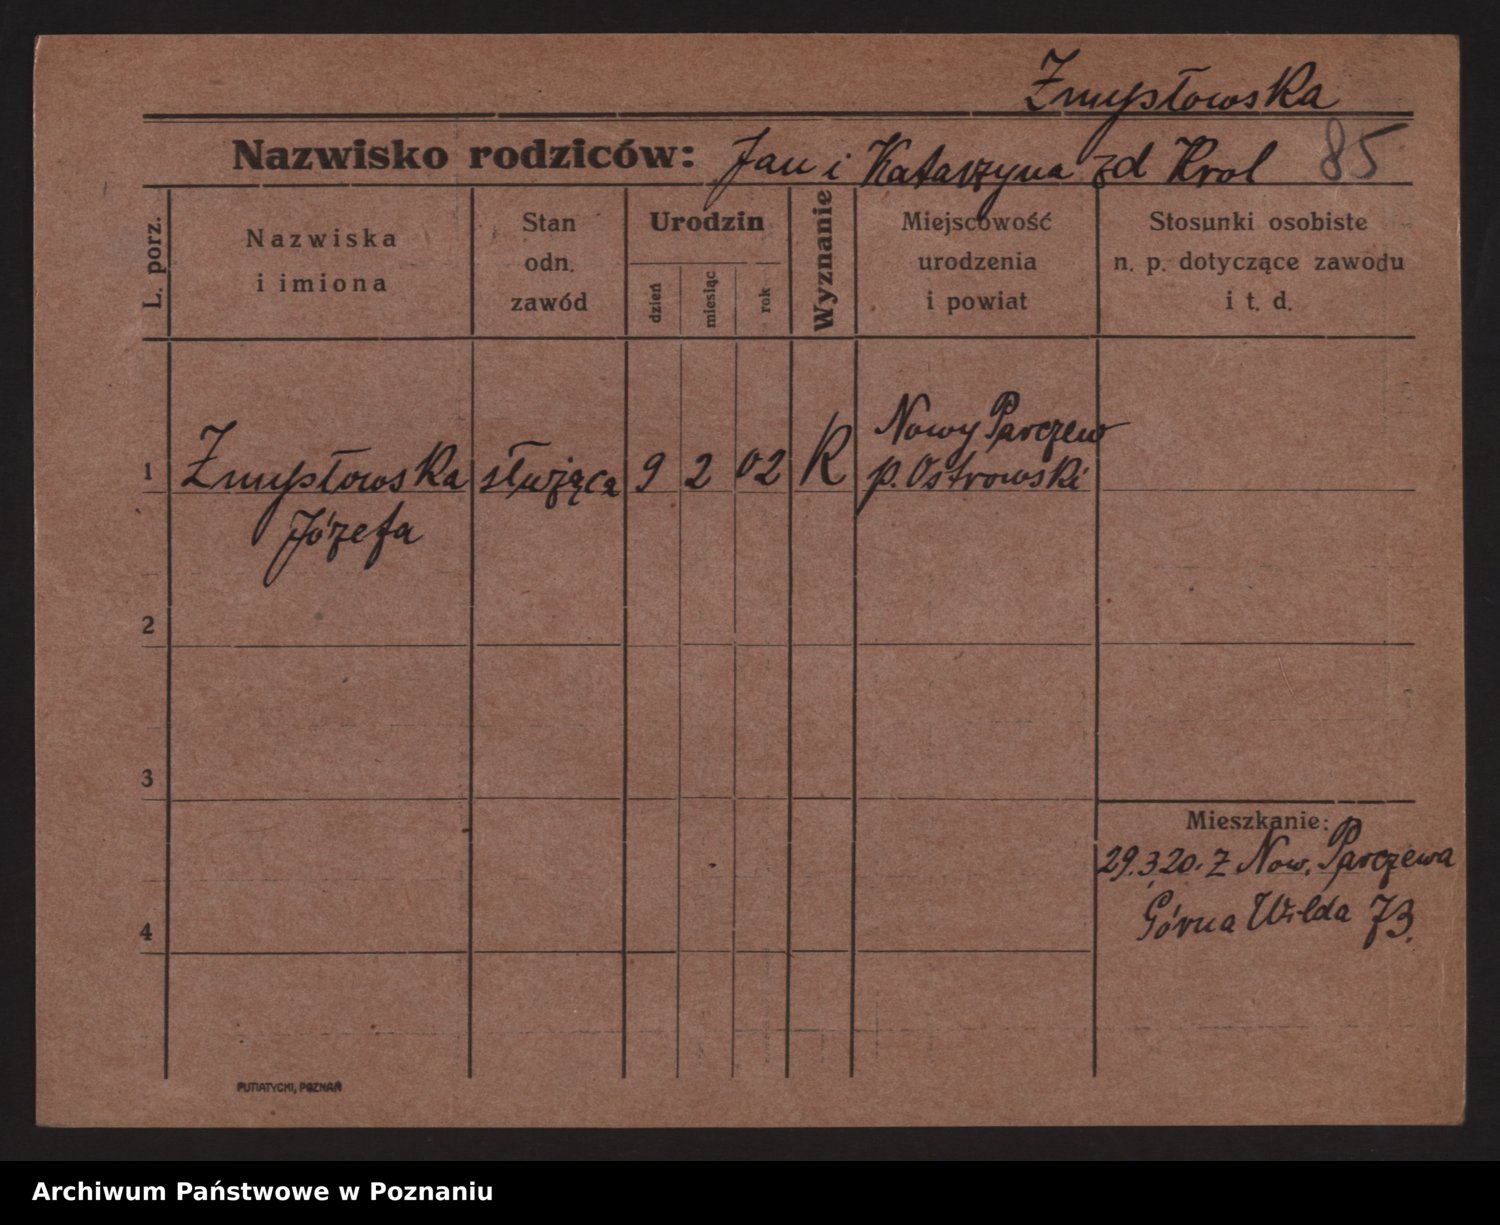 Zmysłowska
Nazwisko rodziców: Jan i Katarzyna zd Krol 85
L. porz.
Nazwiska
i imiona
Stan
odn.
zawód
Urodzin
dzień
miesiąc
rok
Wyznanie
Miejscowość
urodzenia
i powiat
Stosunki osobiste
n. p. dotyczące zawodu
i t. d.
1 Zmysłowska służąca 9 2 02 R Nowy Parczew
p. Ostrowski
Józefa
2
3
4
Mieszkanie:
29.3.20. z Now. Parczewa
Górna Wilda 73.
PUTIATYCKI, POZNAŃ
Archiwum Państwowe w Poznaniu